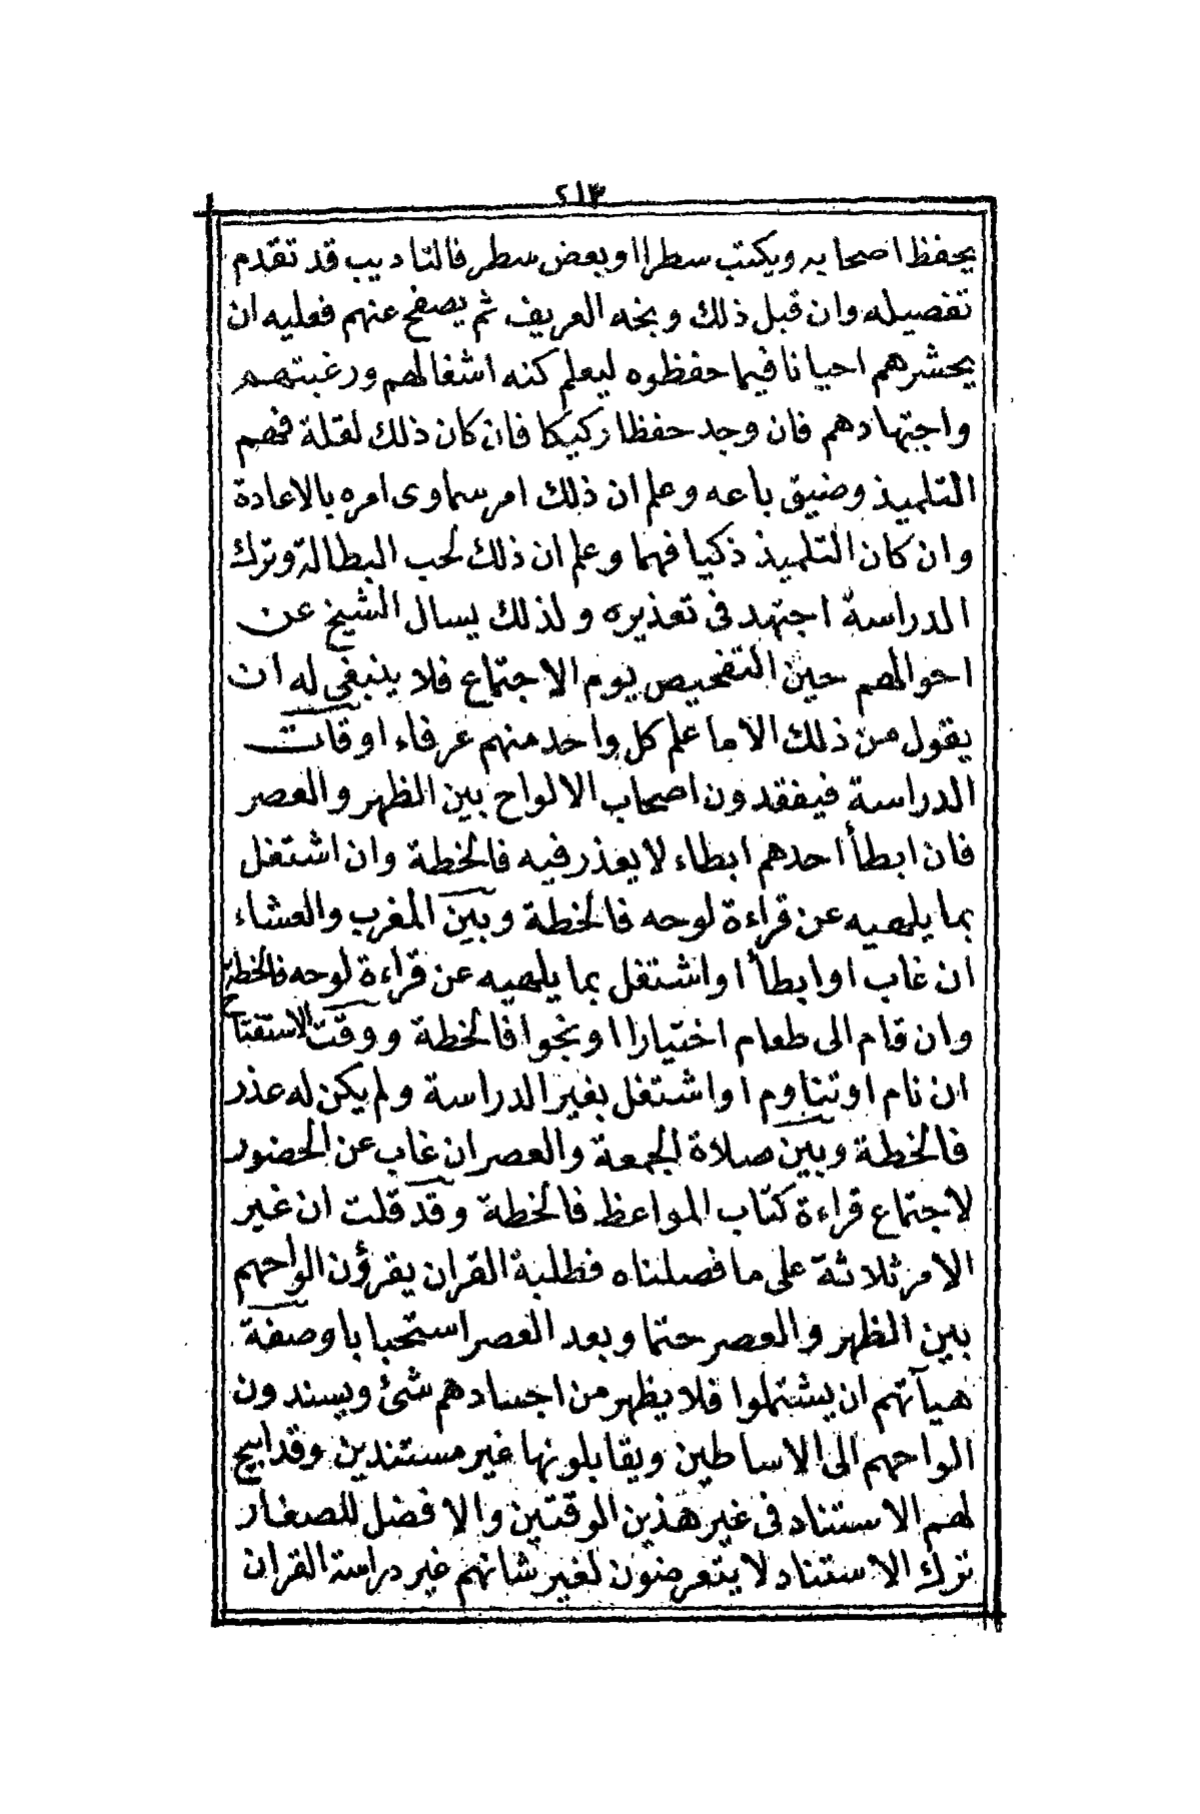 ٢١٣
يحفظ اصحابه ويكتب سطرا او بعض سطر فالتاديب قد تقدم
تفصيله وان قبل ذلك وبخه العريف ثم يصفح عنهم فعليه ان
يحشرهم احيانا فيما حفظوه ليعلم كنه اشغالهم ورغبتهم
واجتهادهم فان وجد حفظا ركيكا فان كان ذلك لقلة فهم
التلميذ وضيق باعه وعلم ان ذلك امر سماوى امره بالاعادة
وان كان التلميذ ذكيا فهما وعلم ان ذلك لحب البطالة وترك
الدراسة اجتهد فى تعذيره ولذلك يسال الشيخ عن
احوالهم حين التفحيص يوم الاجتماع فلا ينبغى له ان
يقول من ذلك الا ما علم كل واحد منهم عرفاء اوقات
الدراسة فيفقدون اصحاب الالواح بين الظهر والعصر
فان ابطأ احدهم ابطاء لا يعذر فيه فالخطة وان اشتغل
بما يلهيه عن قراءة لوحه فالخطة وبين المغرب والعشاء
ان غاب او ابطأ او اشتغل بما يلهيه عن قراءة لوحه فالخطة
وان قام الى طعام اختيارا او نجوا فالخطة ووقت الاستفتاح
ان نام او تناوم او اشتغل بغير الدراسة ولم يكن له عذر
فالخطة وبين صلاة الجمعة والعصر ان غاب عن الحضور
لاجتماع قراءة كتاب المواعظ فالخطة وقد قلت ان غير
الامر ثلاثة على ما فصلناه فطلبة القران يقرؤن الواحهم
بين الظهر والعصر حتما وبعد العصر استحبابا وصفة
هيآتهم ان يشتملوا فلا يظهر من اجسادهم شئ ويسندون
الواحهم الى الاساطين ويقابلونها غير مستندين وقد ابيح
لهم الاستناد فى غير هذين الوقتين والافضل للصغار
ترك الاستناد لا يتعرضون لغير شانهم غير دراسة القران